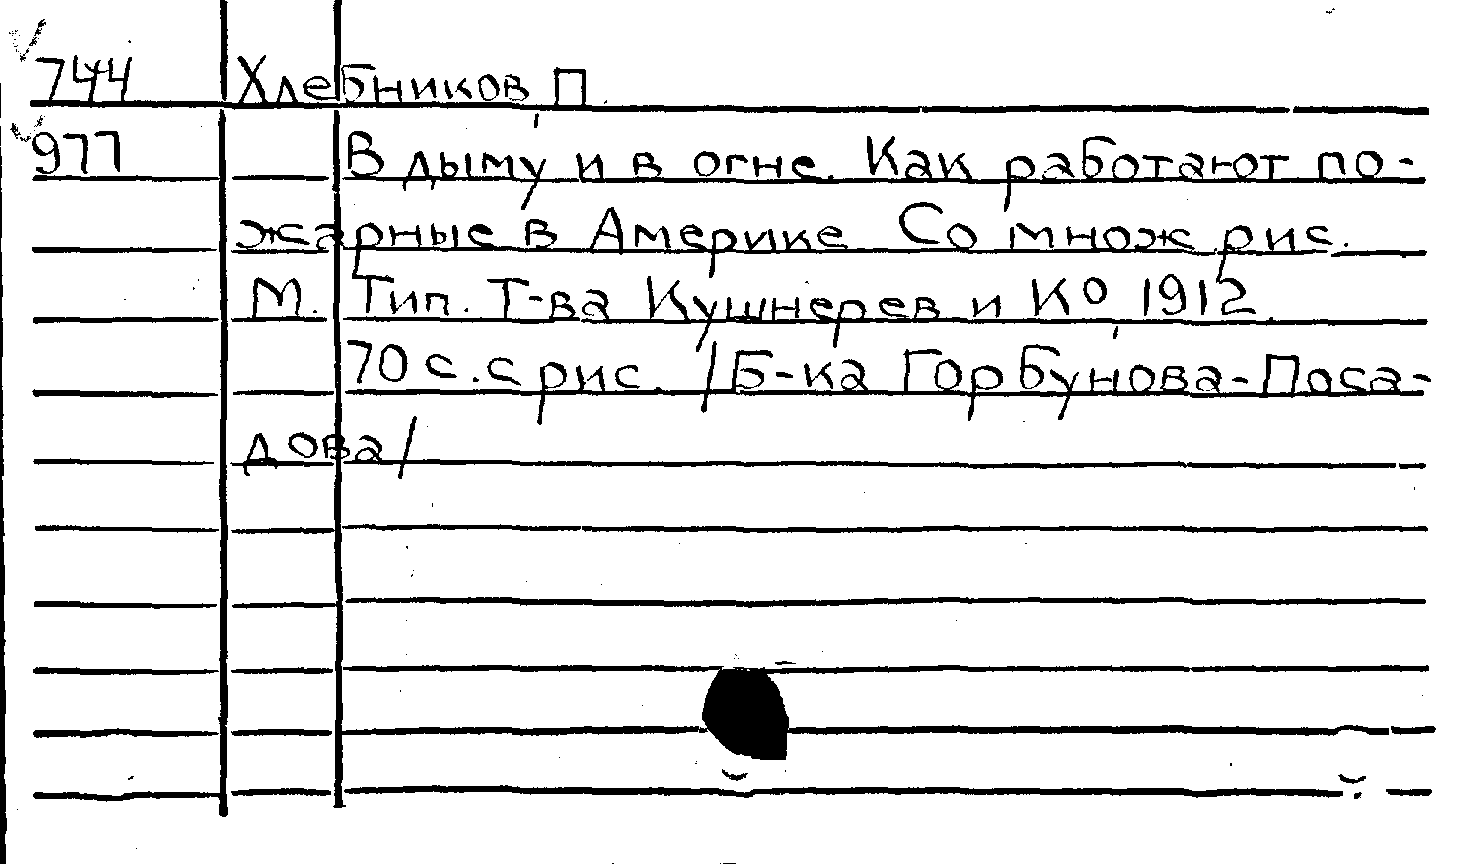 744 Хлебников, П.
977 В дыму и в огне. Как работают по-
жарные в Америке. Со множ. рис.
М. Тип. Т-ва Кушнерев и К⁰, 1912.
70 с. с рис. /Б-ка Горбунова-Поса-
дова/